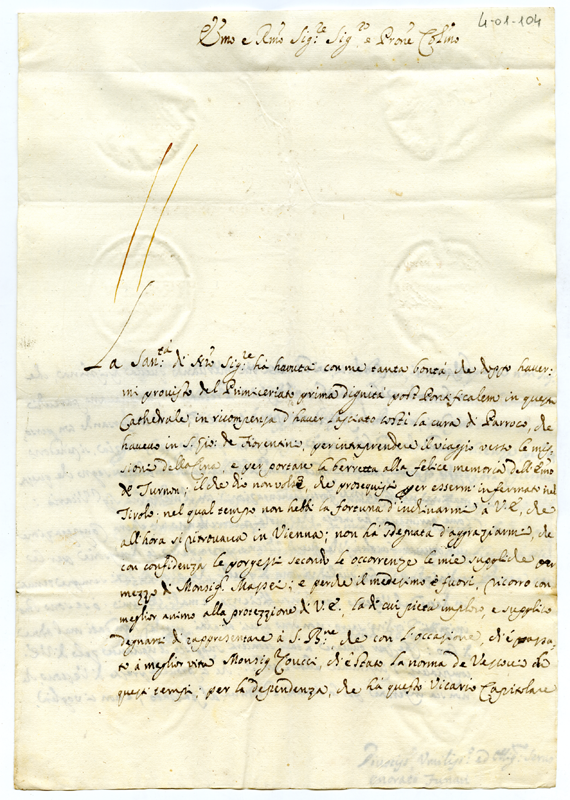 4-01-104
Emo e Rmo Sigre Sigre e Prone Colmo
La Santà di Nro Sigre hà havuta con me tanta bontà, che doppo haver-
mi provisto del Primiceriato prima dignità post Pontificalem in questa
Cathedrale, in ricompensa d'haver lasciato costì la cura di Parroco, che
havevo in S. Gio: de Fiorentini, per intraprendere il viaggio verso le mis-
sioni della Cina, e per portare la berretta alla felice memoria dell'Emo
de Turnon; il che Dio non volse, che proseguissi per essermi infermato nel
Tirolo: nel qual tempo non hebbi la fortuna d'inchinarmi à V.E., che
all'hora si ritrovava in Vienna; non hà sdegnata d'aggraziarmi, che
con confidenza le porgessi secondo le occorrenze le mie suppliche per
mezzo di Monsigr Massei; e perche il medesimo è fuori, ricorro con
meglior animo alla protezzione di V.E. la di cui pietà imploro, e supplico
degnarsi di rappresentare à S. Bne, che con l'occasione, ch'è passa-
to à meglior vita Monsigr Tucci, ch'è stato la norma de Vescovi di
questi tempi; per la dependenza, che hà questo Vicario Capitolare